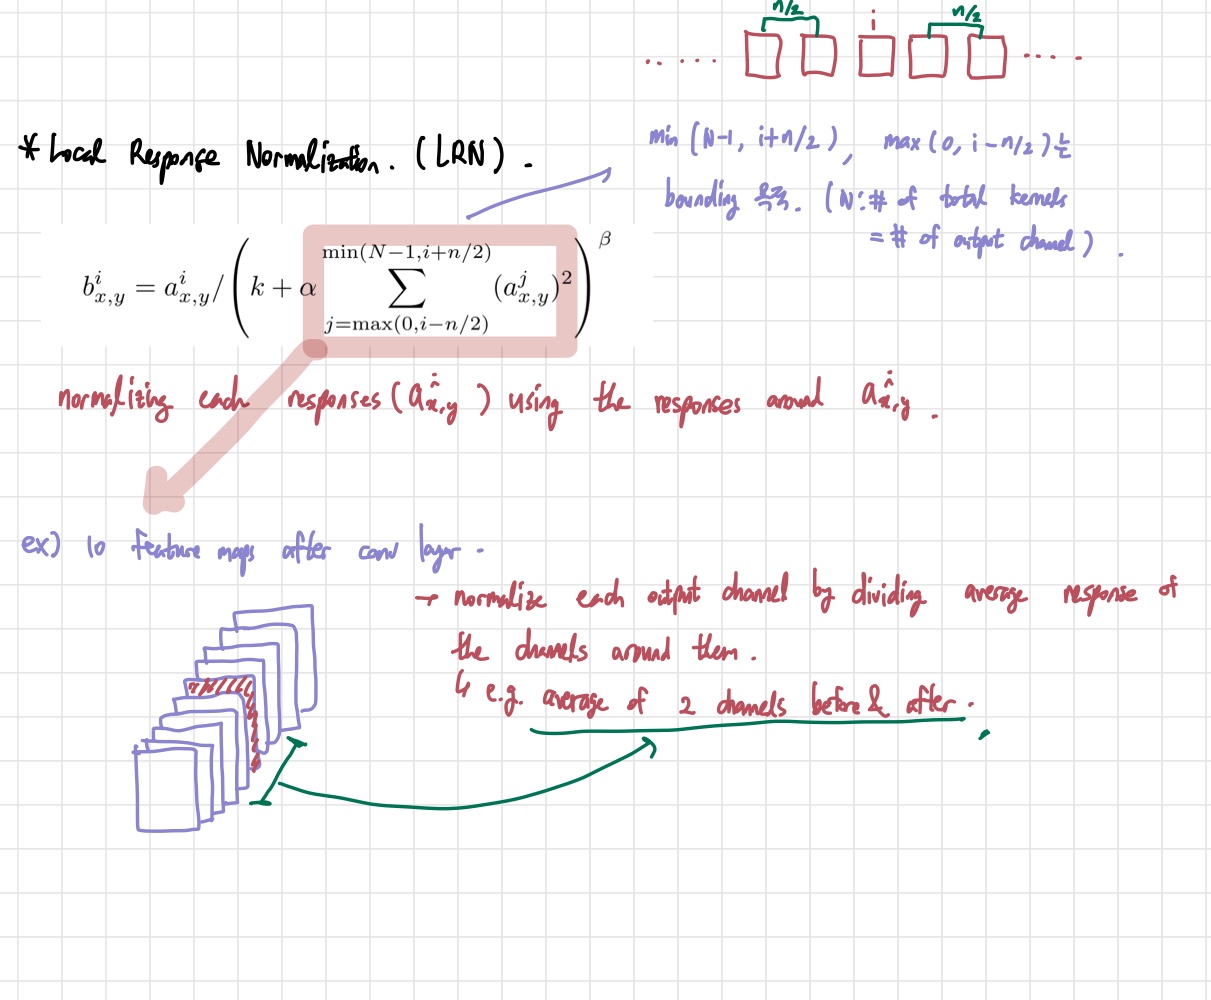 n/2 i n/2
..... .....
* Local Response Normalization. (LRN).
min (N-1, i+n/2), max (0, i-n/2)는
bounding 용도. (N: # of total kernels
= # of output channel).
b^i_{x,y} = a^i_{x,y} / ( k + α ∑_{j=max(0,i−n/2)}^{min(N−1,i+n/2)} (a^j_{x,y})^2 )^β
normalizing each responses (a^i_{x,y}) using the responses around a^i_{x,y}.
ex) 10 feature maps after conv layer.
→ normalize each output channel by dividing average response of
the channels around them.
↳ e.g. average of 2 channels before & after.